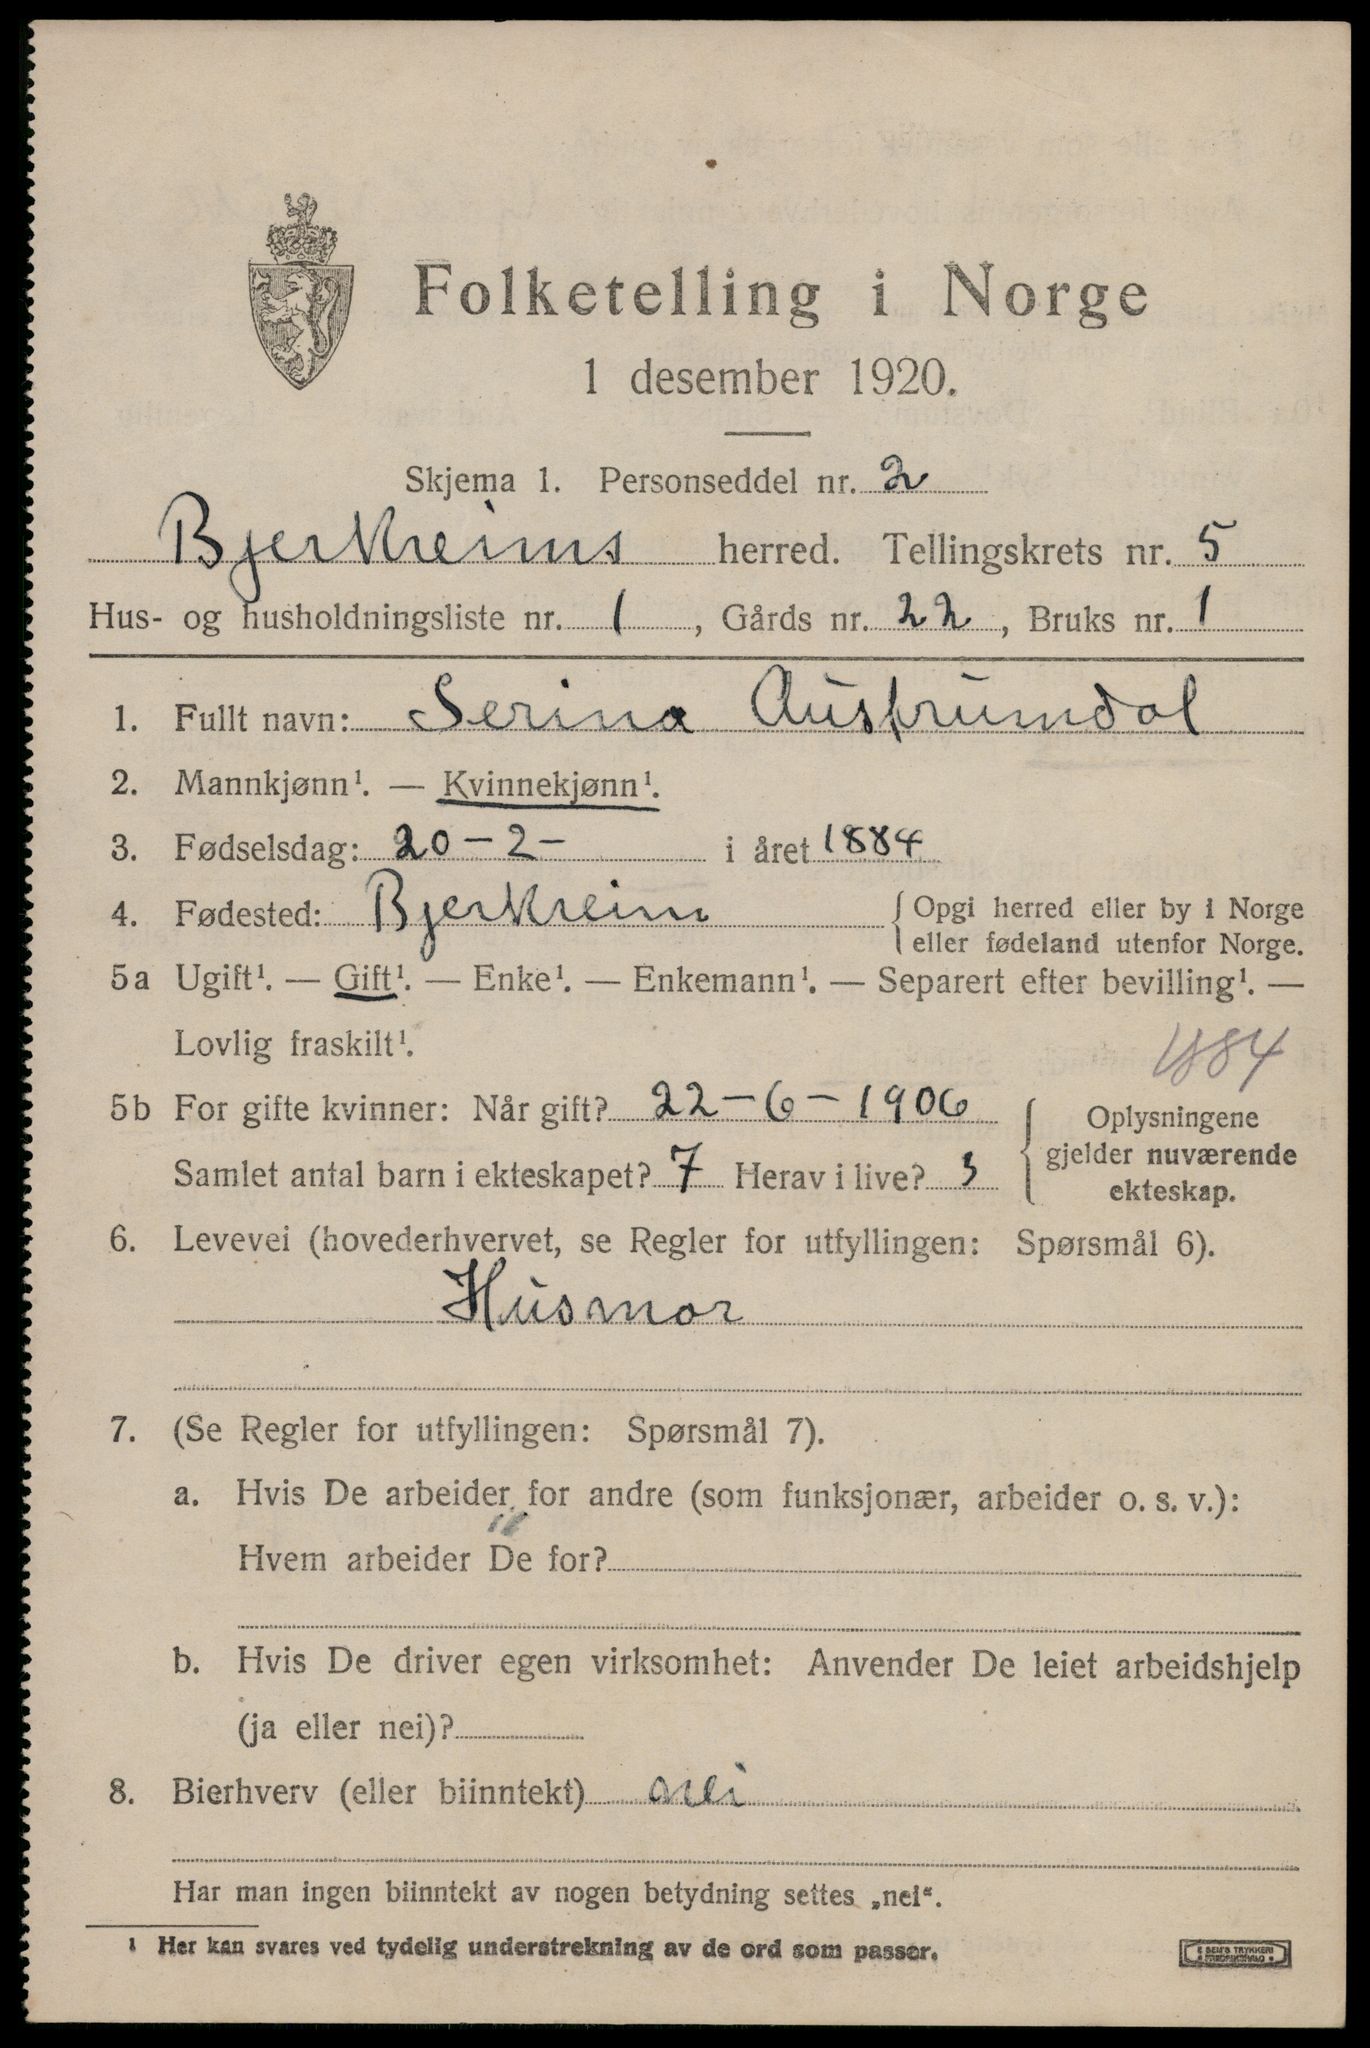 Folketelling i Norge
1 desember 1920.
Skjema 1. Personseddel nr. 2
Bjerkreims herred. Tellingskrets nr. 5
Hus- og husholdningsliste nr. 1, Gårds nr. 22, Bruks nr. 1
1. Fullt navn: Serina Austrumdal
2. Mannkjønn¹. — Kvinnekjønn¹.
3. Fødselsdag: 20-2- i året 1884
4. Fødested: Bjerkreim {Opgi herred eller by i Norge
eller fødeland utenfor Norge.
5a Ugift¹. — Gift¹. — Enke¹. — Enkemann¹. — Separert efter bevilling¹. —
Lovlig fraskilt¹.
1884
5b For gifte kvinner: Når gift? 22-6-1906
Samlet antal barn i ekteskapet? 7 Herav i live? 3
{Oplysningene
gjelder nuværende
ekteskap.
6. Levevei (hovederhvervet, se Regler for utfyllingen: Spørsmål 6).
Husmor
7. (Se Regler for utfyllingen: Spørsmål 7).
a. Hvis De arbeider for andre (som funksjonær, arbeider o. s. v.):
Hvem arbeider De for?
b. Hvis De driver egen virksomhet: Anvender De leiet arbeidshjelp
(ja eller nei)?
8. Bierhverv (eller biinntekt) nei
Har man ingen biinntekt av nogen betydning settes „nei“.
¹ Her kan svares ved tydelig understrekning av de ord som passer.